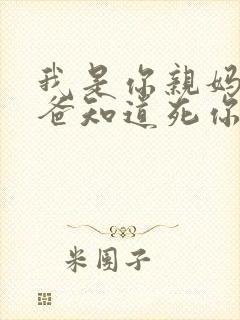 我是你親媽
爸知道死你
米團子